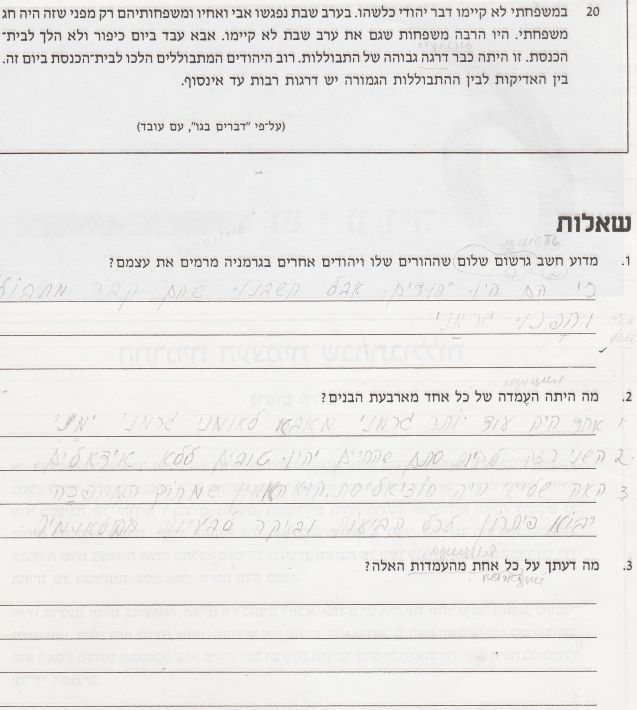 20 במשפחתי לא קיימו דבר יהודי כלשהו. בערב שבת נפגשו אבי ואחיו ומשפחותיהם רק מפני שזה היה חג
משפחתי. היו הרבה משפחות שגם את ערב שבת לא קיימו. אבא עבד ביום כיפור ולא הלך לבית־
הכנסת. זו היתה כבר דרגה גבוהה של התבוללות. רוב היהודים המתבוללים הלכו לבית־הכנסת ביום זה.
בין האדיקות לבין ההתבוללות הגמורה יש דרגות רבות עד אינסוף.
(על־פי "דברים בגו", עם עובד)
שאלות
1. מדוע חשב גרשום שלום שההורים שלו ויהודים אחרים בגרמניה מרמים את עצמם?
כי הם היו יהודים. אבל חשבו שהם כבר
והפכו גרמני
2. מה היתה העמדה של כל אחד מארבעת הבנים?
1 אחד היה עוד יותר גרמני מאבא לאומני גרמני ימני
2. השני רצה להיות סתם שהחיים יהיו טובים ללא אידאלים
3 האח שלישי היה סוציאליסט. הוא האמין שמתוך המהפכה
יבוא פיתרון לכל הבעיות ובעיקר
3. מה דעתך על כל אחת מהעמדות האלה?